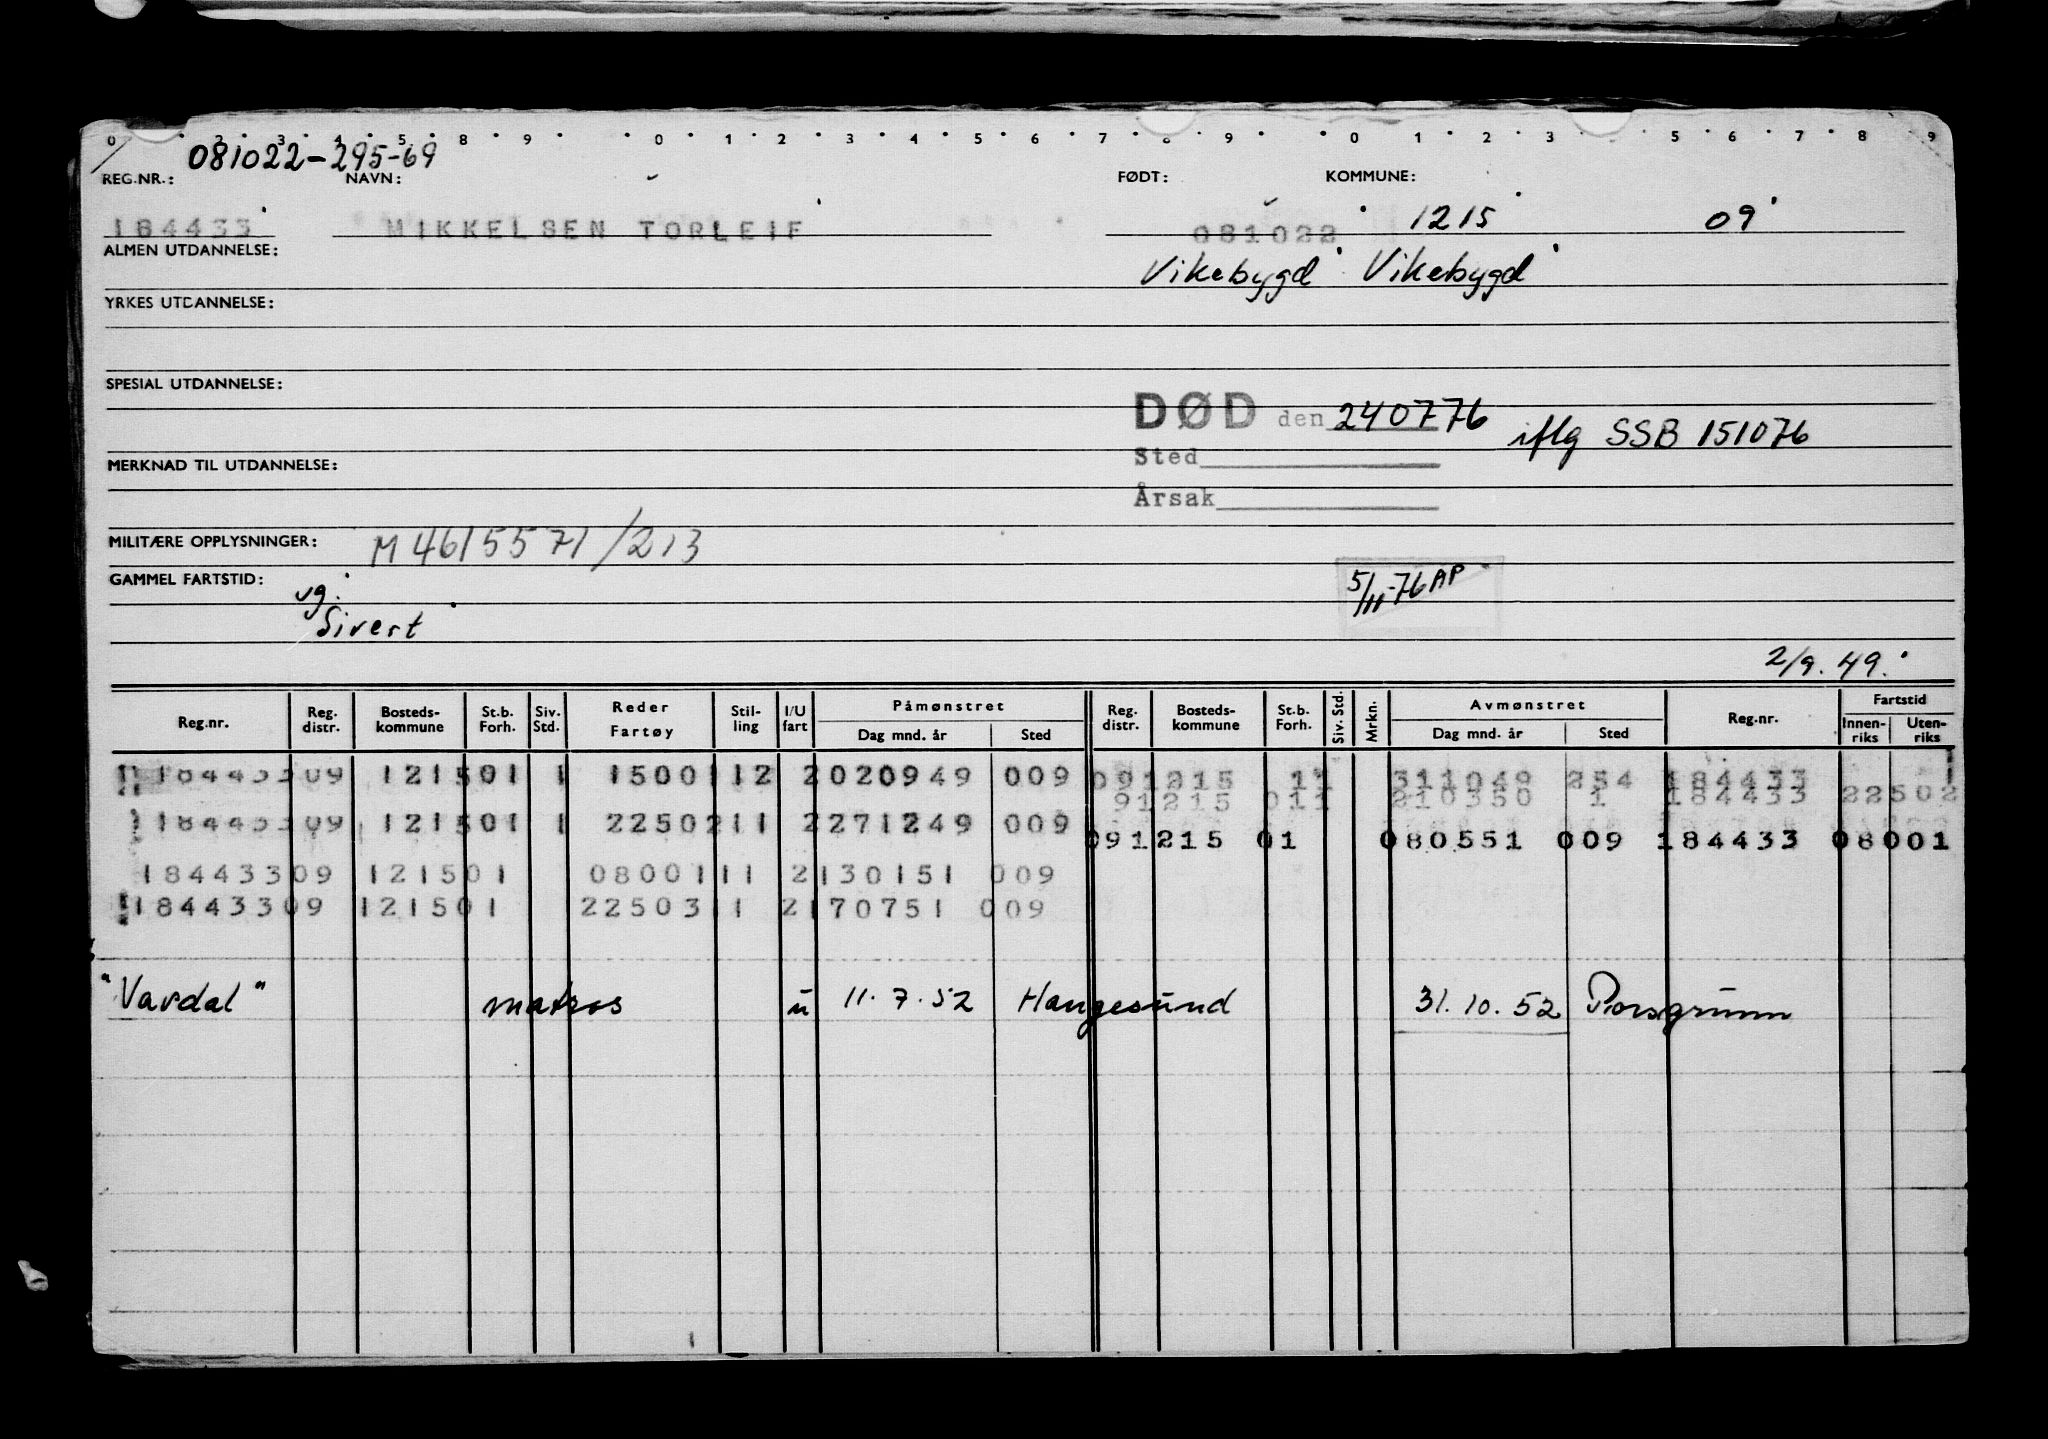 0 2 3 4 5 8 9 0 1 2 3 4 5 6 7 8 9 0 1 2 3 5 6 7 8 9
081022-295-69
REG.NR.: NAVN: FØDT: KOMMUNE:
184433 MIKKELSEN TORLEIF 081022 1215 09
ALMEN UTDANNELSE: Vikebygd Vikebygd
YRKES UTDANNELSE:
SPESIAL UTDANNELSE:
DØD den 240776 iflg SSB 151076
MERKNAD TIL UTDANNELSE: Sted
Årsak
MILITÆRE OPPLYSNINGER: M 4615571/213
GAMMEL FARTSTID: ug. 5/11-76 AP
Sivert
2/9.49.
Reg.nr. Reg. distr. Bosteds-kommune St.b. Forh. Siv. Std. Reder Fartøy Stil-ling I/U fart Påmønstret Dag mnd. år Sted Reg. distr. Bosteds-kommune St.b. Forh. Siv. Std. Mrkn. Avmønstret Dag mnd. år Sted Reg.nr. Fartstid Innen-riks Uten-riks
184433 09 1215 01 1 1500112 2 020949 009 091215 11 311049 254 184433
91215 011 210350 1 184433 22502
184433 09 1215 01 1 2250211 2 271249 009
091215 01 080551 009 184433 08001
184433 09 1215 01 0800111 2 130151 009
184433 09 1215 01 2250311 2 170751 009
"Vardal" matros u 11.7.52 Haugesund 31.10.52 Porsgrunn